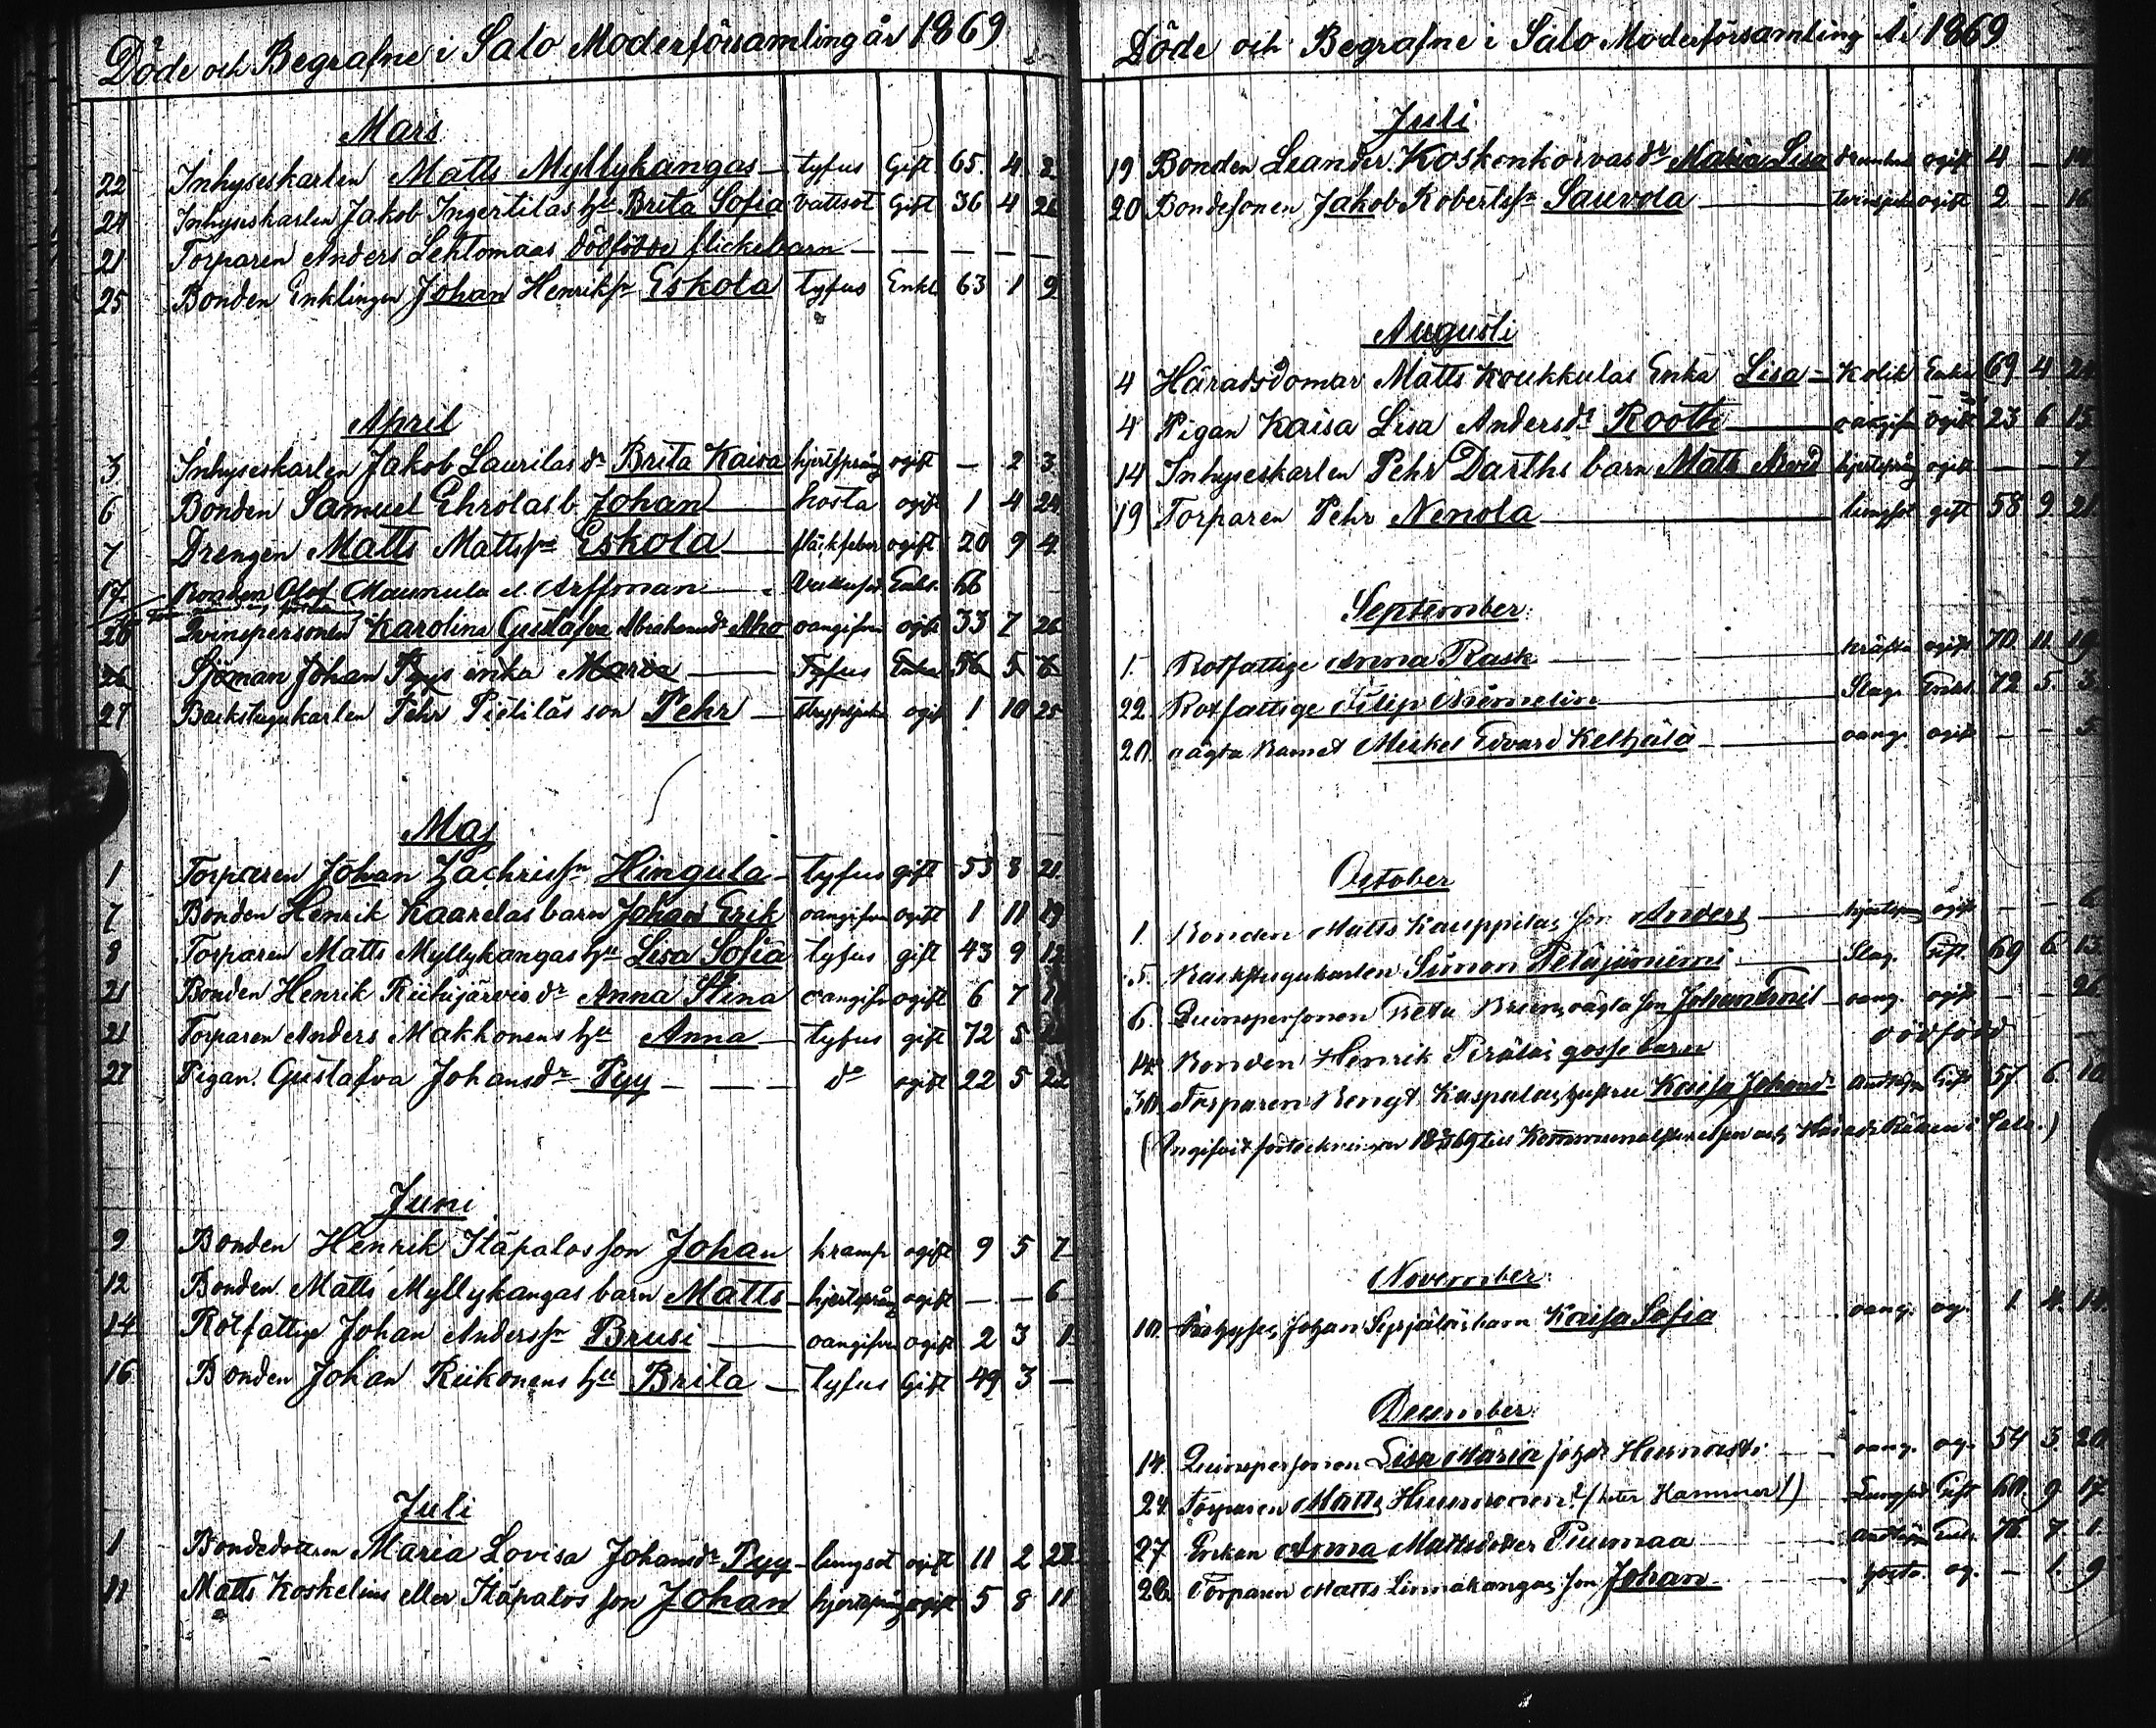 Döde och Begrafne i Salo Moderförsamling år 1869
Mars
22 Inhyseskarlen Matts Myllykangas — tyfus Gift 65. 4. 2
24 Inhyseskarlen Jakob Ingertilas hu Brita Sofia vattsot Gift 36 4 26
21 Torparen Anders Lehtomaas dödfödde flickebarn — — — — —
25 Bonden Enklingen Johan Henrikss. Eskola tyfus Enkl. 63 1 9
April
3 Inhyseskarlen Jakob Laurilas dr Brita Kaisa hjertsprång ogift — 2 3
6 Bonden Samuel Ehrolas b. Johan — hosta ogift 1 4 24
7 Drengen Matts Mattss. Eskola — fläckfeber ogift 20 9 4
17 Bonden Olof Maunula el. Arffman — Enkl. 66
26 Qvinspersonen Karolina Gustafva Abrahamsdr Aho oangifven ogift 33 7 26
26 Sjöman Johan Pyys enka Maria — Tyfus Enka 56 5 6
27 Backstugukarlen Pehr Pietiläs son Pehr — ogift 1 10 25
Maj
1 Torparen Johan Zachriss. Hingula — tyfus gift 53 8 21
7 Bonden Henrik Kaarelas barn Johan Erik oangifven ogift 1 11 19
8 Torparen Matts Myllykangas hu Lisa Sofia tyfus gift 43 9 12
21 Bonden Henrik Riihijärvis dr Anna Stina oangifv. ogift 6 7
21 Torparen Anders Makkonens hu Anna — tyfus gift 72 5
27 Pigan Gustafva Johansdr Pyy — — — do ogift 22 5 22
Juni
9 Bonden Henrik Itäpalos son Johan kramp ogift 9 5 7
12 Bonden Matts Myllykangas barn Matts — hjertsprång ogift — — 6
14 Rotfattige Johan Anderss. Brusi — oangifven ogift 2 3 1
16 Bonden Johan Riikonens hu Brita — tyfus Gift 49 3 —
Juli
1 Bondedottern Maria Lovisa Johansdr Pyy — lungsot ogift 11 2 28
11 Matts Koskelins eller Itäpalos son Johan hjertsprång ogift 5 8 11
Döde och Begrafne i Salo Moderförsamling År 1869
Juli
19 Bonden Leander Koskenkorvas dr Maria Lisa ogift 4 —
20 Bondesonen Jakob Robertss. Sauvola — ogift 2 — 16
Augusti
4 Häradsdomar Matts Koukkulas Enka Lisa — Kolik Enka 69 4 24
4 Pigan Kaisa Lisa Andersdr Rooth — oangifv. ogift 23 6 15
14 Inhyseskarlen Pehr Darths barn Matts Arvid hjertsprång ogift — — 7
19 Torparen Pehr Nenola — lungsot gift 58 9 21
September.
1. Rotfattige Anna Rask — kräfta ogift 70. 11. 19.
22. Rotfattige Filip — Slag. Enkl. 72 5. 3.
20. oägta barnet Mickel Edvard Keltjälä — oang. ogift — — 5.
October
1. Bonden Matts Kauppilas son Anders — hjertspr. ogift — — 6.
5. Backstugukarlen Simon Petäjäniemi — Slag. Gift. 69 6. 13.
6. Quinspersonen oägta son Johan Emil — oang. ogift — — 26.
14. Bonden Henrik Peräläs gossebarn dödfödd —
30. Torparen Bengt Kaspalas hustru Kaisa Johansdr Gift 57 6. 10.
November.
10. Johan barn Kaisa Sofia oang. og. 1. 4. 14.
December.
14. Quinspersonen Lisa Maria oang. og. 54 3. 20.
24. Torparen Matts (heter Hammer!) Lungsot. Gift 60. 9. 17.
27. Enkan Anna Mattsdotter Piumaa Enk. 76. 7. 1.
28. Torparen Matts Linnakangas son Johan — hosta. og. — 1. 9